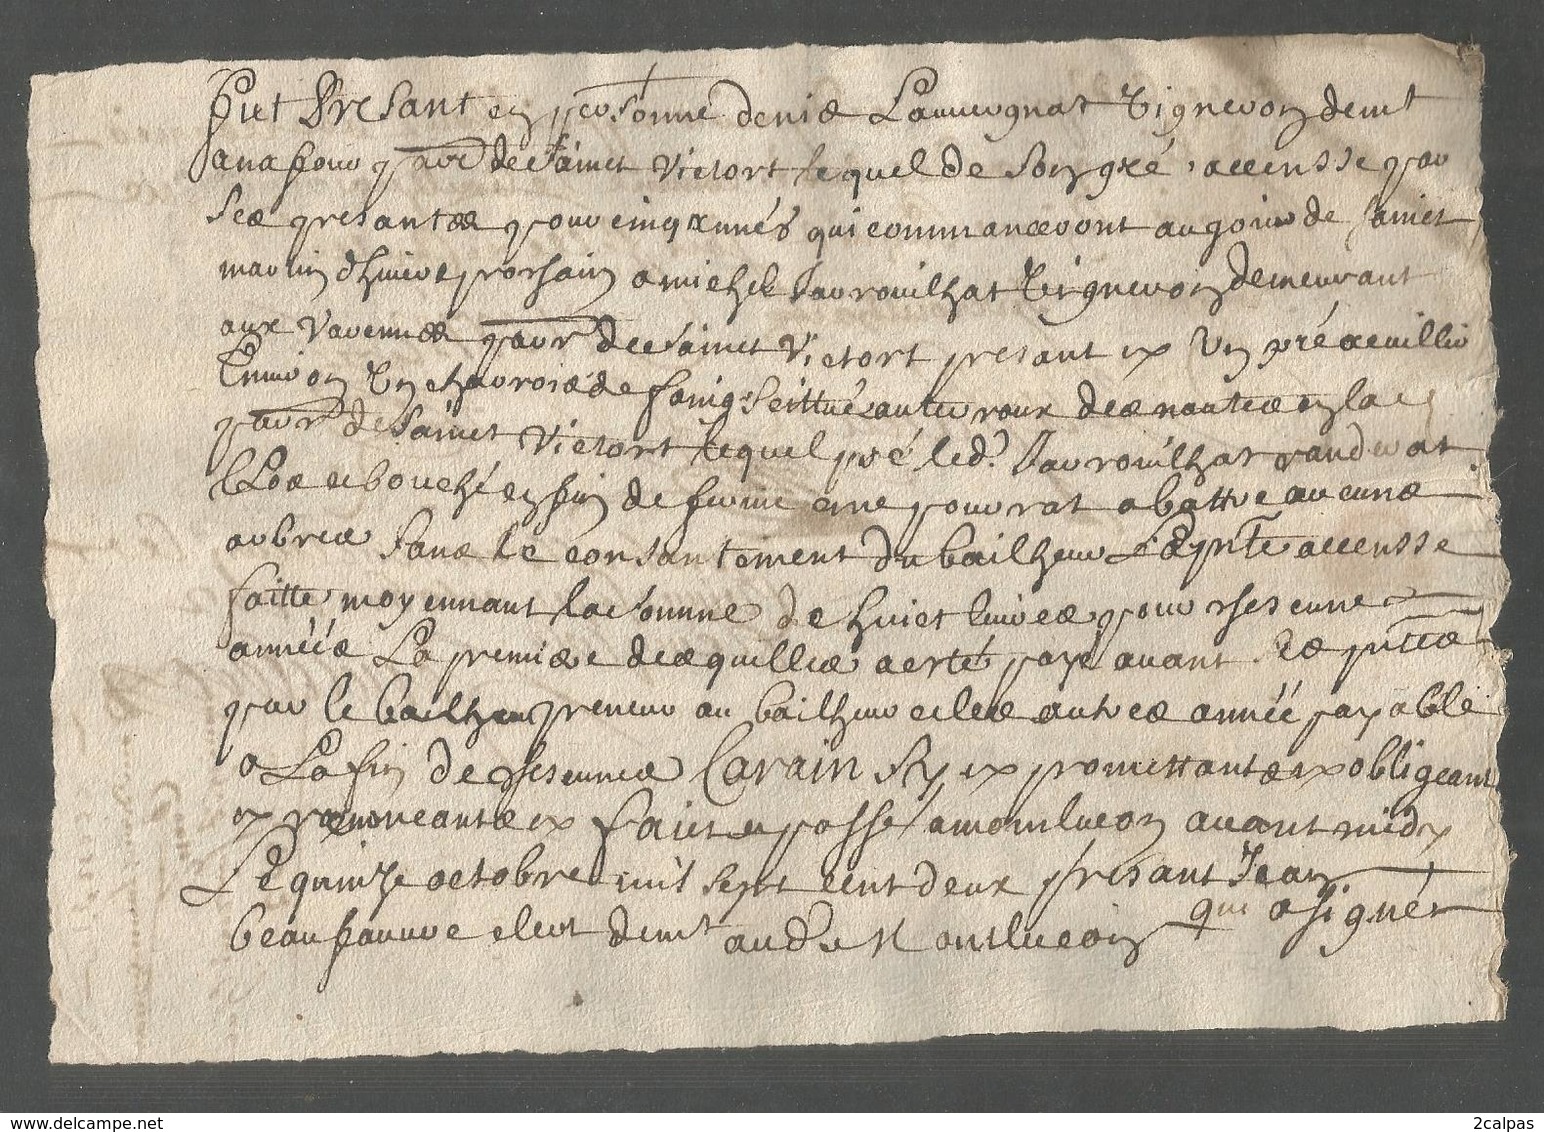 fut Presant en personne denis Lauuergnat Vigneron demt
parr de sainct Victort lequel de son gré, accensse par
ses presantes pour cinq annés qui commanceront au jour de sainct
martin dhiuer prochain a michel Jauroulhat Vigneron demeurant
aux Varennes parr de sainct Victort presant ex Vn pré acuillir
Enuiron Vn charrois de foing, seittué au terroux des nautes en la
parr de sainct Victort lequel pré led. Jauroilhat randerat
Clos et bouché en fin de ferme et ne pourrat abattre aucuns
arbres sans le consantement du bailheur Les pnte accensse
faitte moyennant la somme de huict liures pour chescune
année La premiere desquelles a esté payé auant ses pntes
par le bailheur preneur au bailheur et les autres année payable
a La fin de chescunes Carain sy ex promettants ex obligeant
ex renonceants ex faict et passé a montlucon auant midy
Le quinze octobre mil sept cent deux presant Jean
beaufauure clert demt aud. Montlucon qui a signé
2calpas